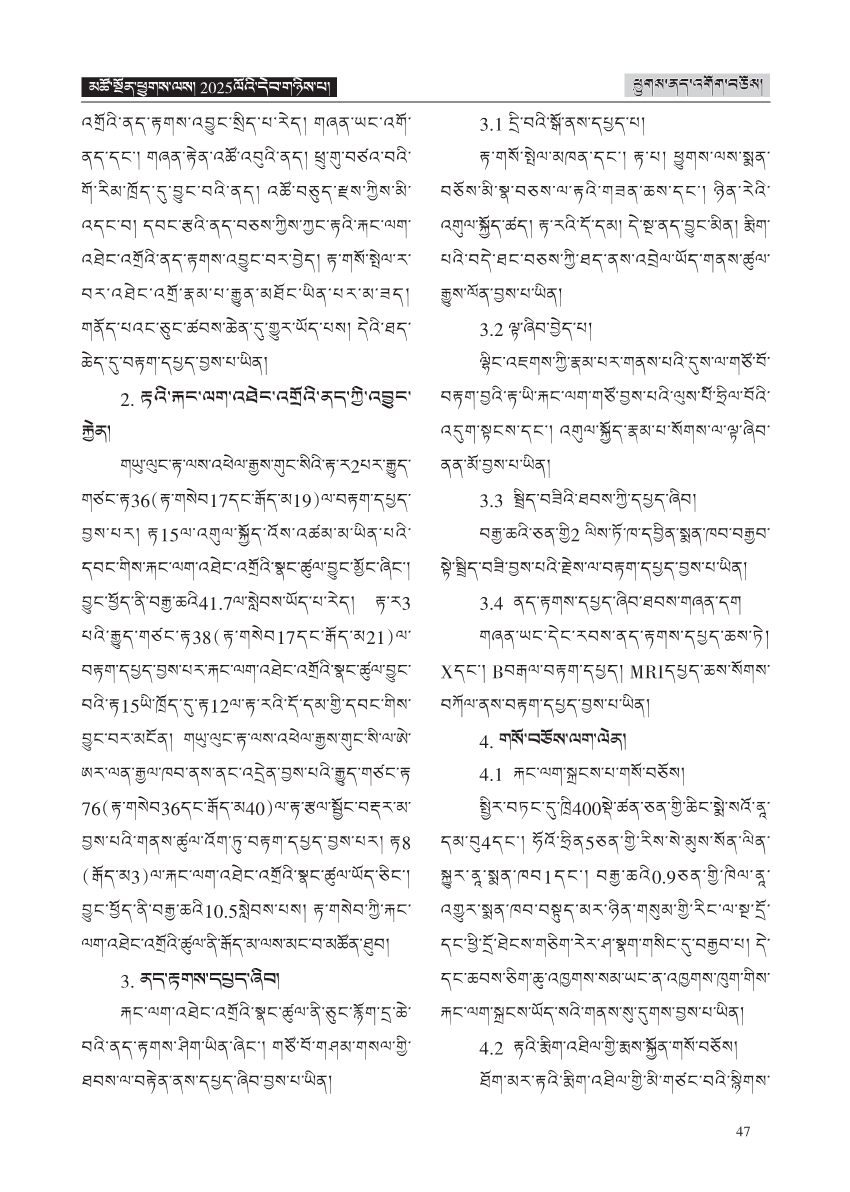 མཚོ་སྔོན་ཕྱུགས་ལས། 2025ལོའི་དེབ་གཉིས་པ།
ཕྱུགས་ནད་འགོག་བཅོས།
འགྲོའི་ནད་རྟགས་འབྱུང་སྲིད་པ་རེད། གཞན་ཡང་འགོ་
ནད་དང་། གཞན་རྟེན་འཚོ་འབུའི་ནད། ཕྲུ་གུ་བཙའ་བའི་
གོ་རིམ་ཁྲོད་དུ་བྱུང་བའི་ནད། འཚོ་བཅུད་རྫས་ཀྱིས་མི་
འདང་བ། དབང་རྩའི་ནད་བཅས་ཀྱིས་ཀྱང་རྟའི་རྐང་ལག་
འཐེང་འགྲོའི་ནད་རྟགས་འབྱུང་བར་བྱེད། རྟ་གསོ་སྤེལ་ར་
བར་འཐེང་འགྲོ་རྣམ་པ་རྒྱུན་མཐོང་ཡིན་པར་མ་ཟད།
གནོད་པའང་ཅུང་ཚབས་ཆེན་དུ་གྱུར་ཡོད་པས། དེའི་ཐད་
ཆེད་དུ་བརྟག་དཔྱད་བྱས་པ་ཡིན།
2. རྟའི་རྐང་ལག་འཐེང་འགྲོའི་ནད་ཀྱི་འབྱུང་
རྐྱེན།
གཡུ་ལུང་རྟ་ལས་འཕེལ་རྒྱས་གུང་སིའི་རྟ་ར2པར་རྒྱུད་
གཙང་རྟ36(རྟ་གསེབ17དང་རྒོད་མ19)ལ་བརྟག་དཔྱད་
བྱས་པར། རྟ15ལ་འགུལ་སྐྱོད་འོས་འཚམ་མ་ཡིན་པའི་
དབང་གིས་རྐང་ལག་འཐེང་འགྲོའི་སྣང་ཚུལ་བྱུང་མྱོང་ཞིང་།
བྱུང་ཕྱོད་ནི་བརྒྱ་ཆའི41.7ལ་སླེབས་ཡོད་པ་རེད། རྟ་ར3
པའི་རྒྱུད་གཙང་རྟ38(རྟ་གསེབ17དང་རྒོད་མ21)ལ་
བརྟག་དཔྱད་བྱས་པར་རྐང་ལག་འཐེང་འགྲོའི་སྣང་ཚུལ་བྱུང་
བའི་རྟ15ཡི་ཁྲོད་དུ་རྟ12ལ་རྟ་རའི་དོ་དམ་གྱི་དབང་གིས་
བྱུང་བར་མངོན། གཡུ་ལུང་རྟ་ལས་འཕེལ་རྒྱས་གུང་སི་ལ་ཨེ་
ཨར་ལན་རྒྱལ་ཁབ་ནས་ནང་འདྲེན་བྱས་པའི་རྒྱུད་གཙང་རྟ
76(རྟ་གསེབ36དང་རྒོད་མ40)ལ་རྟ་རྩལ་སྦྱོང་བརྡར་མ་
བྱས་པའི་གནས་ཚུལ་འོག་ཏུ་བརྟག་དཔྱད་བྱས་པར། རྟ8
(རྒོད་མ3)ལ་རྐང་ལག་འཐེང་འགྲོའི་སྣང་ཚུལ་ཡོད་ཅིང་།
བྱུང་ཕྱོད་ནི་བརྒྱ་ཆའི10.5སླེབས་པས། རྟ་གསེབ་ཀྱི་རྐང་
ལག་འཐེང་འགྲོའི་ཚུལ་ནི་རྒོད་མ་ལས་མང་བ་མཚོན་ཐུབ།
3. ནད་རྟགས་དཔྱད་ཞིབ།
རྐང་ལག་འཐེང་འགྲོའི་སྣང་ཚུལ་ནི་ཅུང་རྙོག་དྲ་ཆེ་
བའི་ནད་རྟགས་ཤིག་ཡིན་ཞིང་། གཙོ་བོ་གཤམ་གསལ་གྱི་
ཐབས་ལ་བརྟེན་ནས་དཔྱད་ཞིབ་བྱས་པ་ཡིན།
3.1 དྲི་བའི་སྒོ་ནས་དཔྱད་པ།
རྟ་གསོ་སྤེལ་མཁན་དང་། རྟ་པ། ཕྱུགས་ལས་སྨན་
བཅོས་མི་སྣ་བཅས་ལ་རྟའི་གཟན་ཆས་དང་། ཉིན་རེའི་
འགུལ་སྐྱོད་ཚད། རྟ་རའི་དོ་དམ། དེ་སྔ་ནད་བྱུང་མིན། རྨིག་
པའི་བདེ་ཐང་བཅས་ཀྱི་ཐད་ནས་འབྲེལ་ཡོད་གནས་ཚུལ་
རྒྱུས་ལོན་བྱས་པ་ཡིན།
3.2 ལྟ་ཞིབ་བྱེད་པ།
ལྷིང་འཇགས་ཀྱི་རྣམ་པར་གནས་པའི་དུས་ལ་གཙོ་བོ་
བརྟག་བྱའི་རྟ་ཡི་རྐང་ལག་གཙོ་བྱས་པའི་ལུས་པོ་ཧྲིལ་བོའི་
འདུག་སྟངས་དང་། འགུལ་སྐྱོད་རྣམ་པ་སོགས་ལ་ལྟ་ཞིབ་
ནན་མོ་བྱས་པ་ཡིན།
3.3 སྦྲིད་བཟིའི་ཐབས་ཀྱི་དཔྱད་ཞིབ།
བརྒྱ་ཆའི་ཅན་གྱི2 ལིས་ཏོ་ཁ་དབྱིན་སྨན་ཁབ་བརྒྱབ་
སྟེ་སྦྲིད་བཟི་བྱས་པའི་རྗེས་ལ་བརྟག་དཔྱད་བྱས་པ་ཡིན།
3.4 ནད་རྟགས་དཔྱད་ཞིབ་ཐབས་གཞན་དག
གཞན་ཡང་དེང་རབས་ནད་རྟགས་དཔྱད་ཆས་ཏེ།
Xདང་། Bབརྒལ་བརྟག་དཔྱད། MRIདཔྱད་ཆས་སོགས་
བཀོལ་ནས་བརྟག་དཔྱད་བྱས་པ་ཡིན།
4. གསོ་བཅོས་ལག་ལེན།
4.1 རྐང་ལག་སྐྲངས་པ་གསོ་བཅོས།
སྤྱིར་བཏང་དུ་ཁྲི400སྡེ་ཚན་ཅན་གྱི་ཆིང་སྨེ་སའོ་ནཱ་
དམ་བུ4དང་། ཧོའོ་ཧྲིན5ཅན་གྱི་རིས་སེ་མུས་སོན་ལིན་
སྐྱུར་ནཱ་སྨན་ཁབ1དང་། བརྒྱ་ཆའི0.9ཅན་གྱི་ཁིལ་ནཱ་
འགྱུར་སྨན་ཁབ་བསྟུད་མར་ཉིན་གསུམ་གྱི་རིང་ལ་སྔ་དྲོ་
དང་ཕྱི་དྲོ་ཐེངས་གཅིག་རེར་ཤ་སྣག་གསིང་དུ་བརྒྱབ་པ། དེ་
དང་ཆབས་ཅིག་ཆུ་འཁྱགས་སམ་ཡང་ན་འཁྱགས་ཁུག་གིས་
རྐང་ལག་སྐྲངས་ཡོད་སའི་གནས་སུ་དུགས་བྱས་པ་ཡིན།
4.2 རྟའི་རྨིག་འཐིལ་གྱི་རྨས་སྐྱོན་གསོ་བཅོས།
ཐོག་མར་རྟའི་རྨིག་འཐིལ་གྱི་མི་གཙང་བའི་སྙིགས་
47